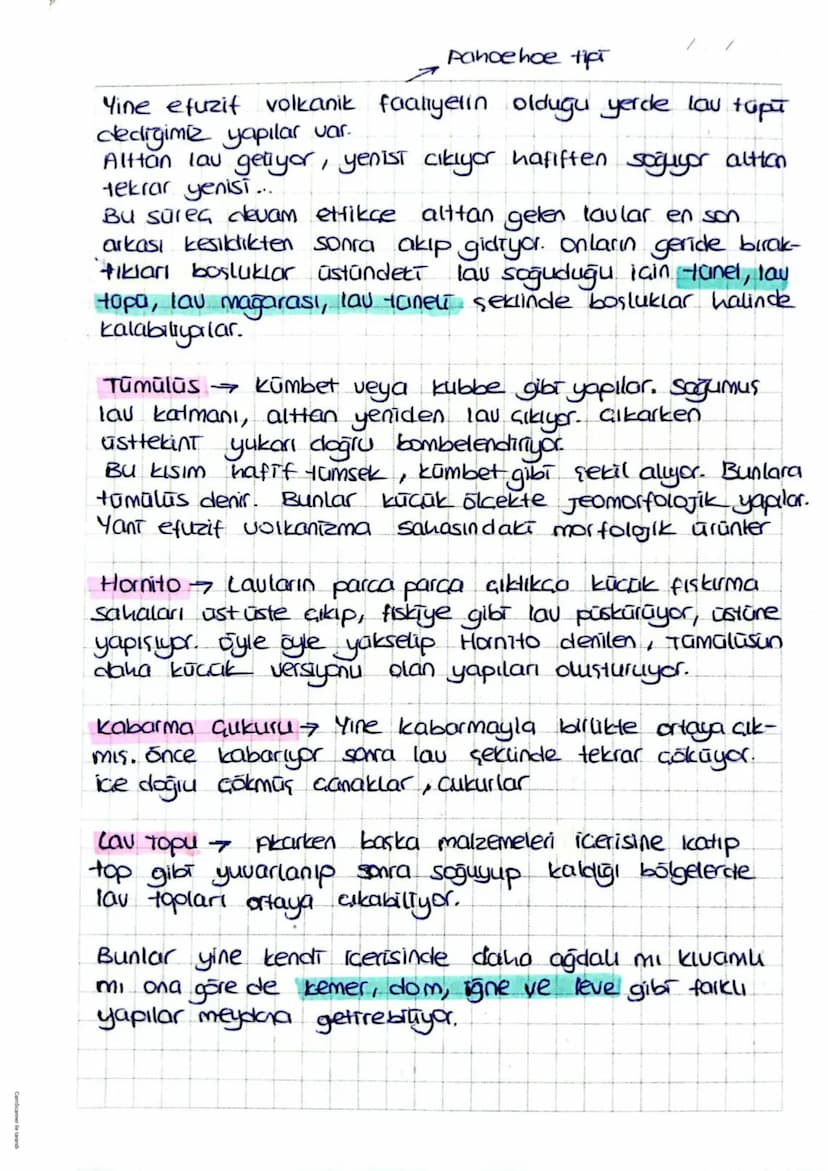 Pahoehoe tipi
Yine efuzif volkanik faaliyetin olduğu yerde lav tüpü
dediğimiz yapılar var.
Alttan lav geliyor, yenisi çıkıyor hafiften soğuyor alttan
tekrar yenisi...
Bu süreç devam ettikçe alttan gelen lavlar en son
arkası kesildikten sonra akıp gidiyor. Onların geride bırak-
tıkları boşluklar üstündeki lav soğuduğu için tünel, lav
tüpü, lav mağarası, lav tüneli şeklinde boşluklar halinde
kalabiliyorlar.
Tümülüs → Kümbet veya kubbe gibi yapılar. Soğumuş
lav katmanı, alttan yeniden lav çıkıyor. Çıkarken
üsttekini yukarı doğru bombelendiriyor.
Bu kısım hafif tümsek, kümbet gibi şekil alıyor. Bunlara
tümülüs denir. Bunlar küçük ölçekte jeomorfolojik yapılar.
Yani efuzif volkanizma sahasındaki morfolojik ürünler
Hornito → Lavların parça parça çıktıkça küçük fışkırma
sahaları üst üste çıkıp, fıskiye gibi lav püskürüyor, üstüne
yapışıyor. Öyle öyle yükselip Hornito denilen, Tümülüsün
daha küçük versiyonu olan yapıları oluşturuyor.
Kabarma Çukuru → Yine kabarmayla birlikte ortaya çık-
mış. Önce kabarıyor sonra lav şeklinde tekrar çöküyor.
İçe doğru çökmüş çanaklar, çukurlar
Lav Topu → Akarken başka malzemeleri içerisine katıp
top gibi yuvarlanıp sonra soğuyup kaldığı bölgelerde
lav topları ortaya çıkabiliyor.
Bunlar yine kendi içerisinde daha ağdalı mı kıvamlı
mı ona göre de kemer, dom, iğne ve leve gibi farklı
yapılar meydana getirebiliyor.
CamScanner ile tarandı